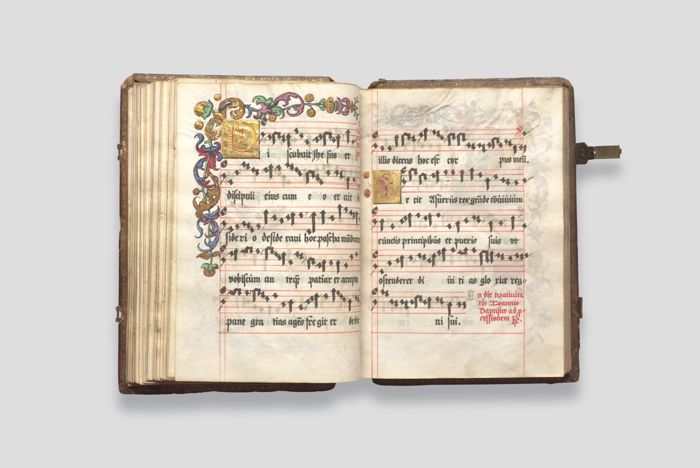 D
i scubuit Jhesus et
discipuli eius cum e o et ait
side ri o deside raui hoc pascha
vobiscum an teqz patiar et accepto
pane gra tias agēs fre git et dede
illis dicens hoc est cor pus meū
F
e cit Assuerus rex grāde conuiuium
cunctis principibus et pueris suis vt
ostenderet di ui ti as glo rie reg-
ni sui.
In die Natiuita
tis Joannis
Baptiste ad p
cessionem